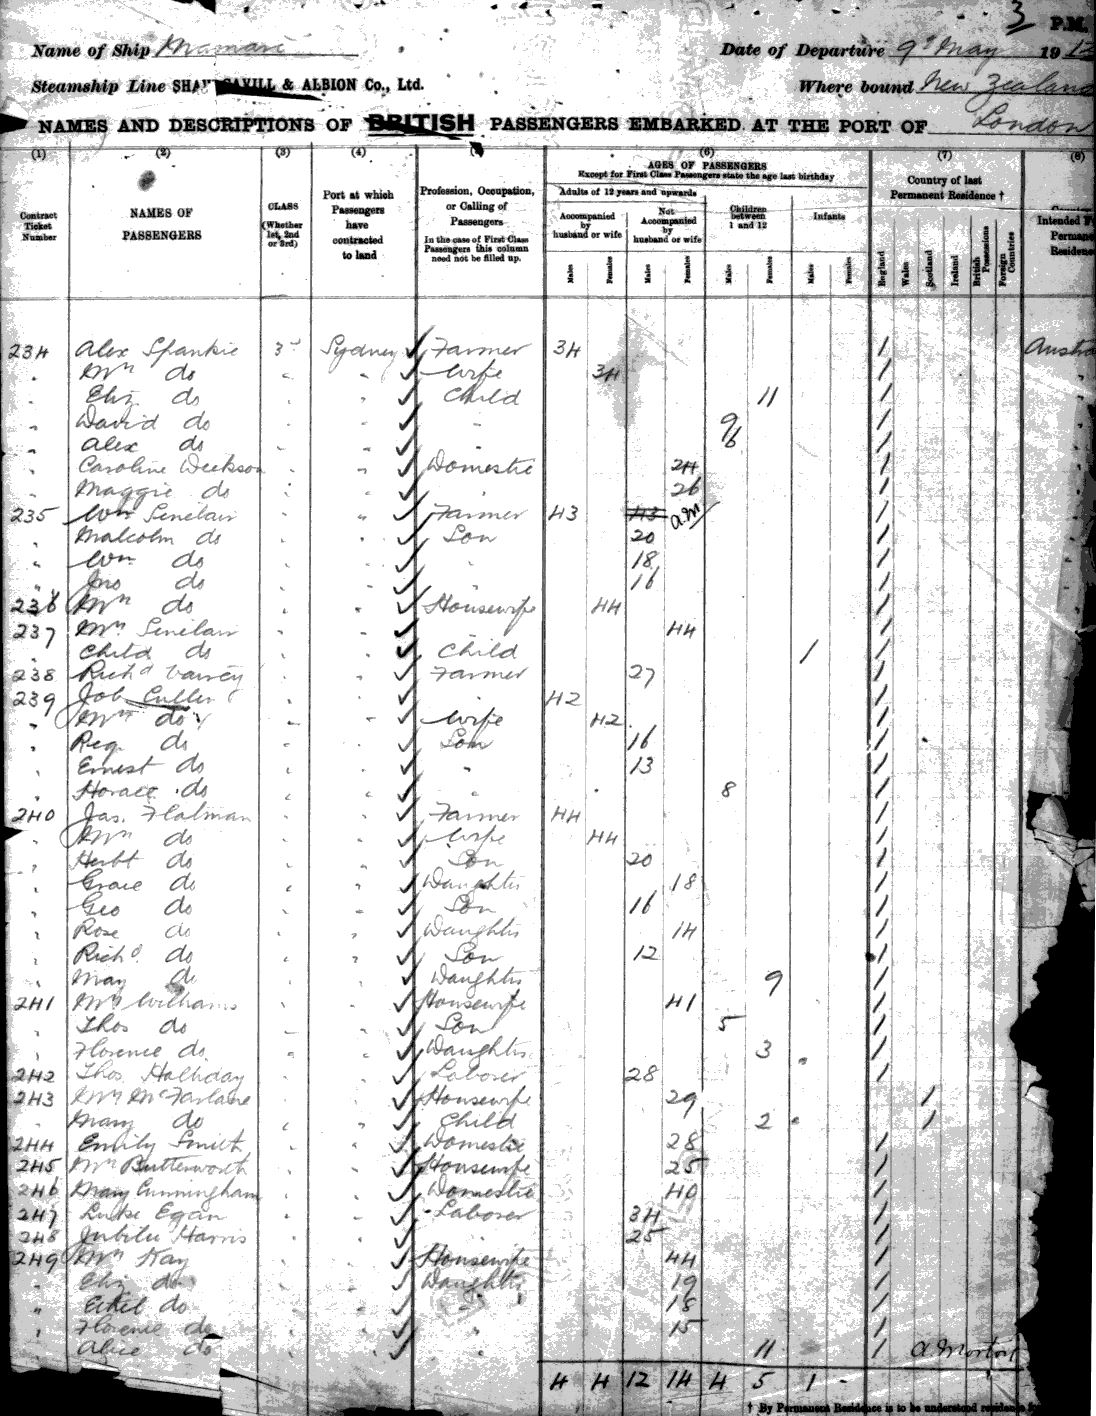 3 P.M.
Name of Ship Mamari Date of Departure 9th May 1913
Steamship Line SHAW SAVILL & ALBION Co., Ltd. Where bound New Zealand
NAMES AND DESCRIPTIONS OF BRITISH PASSENGERS EMBARKED AT THE PORT OF London
(1) (2) (3) (4) (6) (7) (8)
Contract Ticket Number
NAMES OF PASSENGERS
CLASS (Whether 1st, 2nd or 3rd)
Port at which Passengers have contracted to land
Profession, Occupation, or Calling of Passengers
In the case of First Class Passengers this column need not be filled up.
AGES OF PASSENGERS
Except for First Class Passengers state the age last birthday
Adults of 12 years and upwards
Accompanied by husband or wife
Not Accompanied by husband or wife
Children between 1 and 12
Infants
Males Females Males Females Males Females Males Females
Country of last Permanent Residence †
England Wales Scotland Ireland British Possessions Foreign Countries
Intended
Permane
Residence
234 Alex Spankie 3rd Sydney ✓ Farmer 34 1 Austra
" Mrs do " " ✓ Wife 34 1
" Eliz do " " ✓ Child 11 1
" David do " " ✓ " 9 1
" Alex do " " ✓ " 6 1
" Caroline do " " ✓ Domestic 24 1
" Maggie do " " ✓ " 26 1
235 Wm Sinclair " " ✓ Farmer 43 43 a.m 1
" Malcolm do " " ✓ Son 20 1
" Wm do " " ✓ " 18 1
" Jno do " " ✓ " 16 1
236 Mrs do " " ✓ Housewife 44 1
237 Mrs Sinclair " " ✓ 44 1
" Child do " " ✓ Child 1 1
238 Richd " " ✓ Farmer 27 1
239 Job Cutler " " ✓ " 42 1
" Mrs do " " ✓ Wife 42 1
" Reg do " " ✓ Son 16 1
" Ernest do " " ✓ " 13 1
" Horace do " " ✓ 8 1
240 Jas. Flatman " " ✓ Farmer 44 1
" Mrs do " " ✓ Wife 44 1
" Herbt do " " ✓ Son 20 1
" Grace do " " ✓ Daughter 18 1
" Geo do " " ✓ Son 16 1
" Rose do " " ✓ Daughter 14 1
" Richd do " " ✓ Son 12 1
" May do " " ✓ Daughter 9 1
241 Mrs Williams " " ✓ Housewife 41 1
" Thos do " " ✓ Son 5 1
" Florence do " " ✓ Daughter 3 1
242 Thos Halliday " " ✓ Laborer 28 1
243 Mrs McFarlane " " ✓ Housewife 29 1
" Mary do " " ✓ Child 2 1
244 Emily Smith " " ✓ Domestic 28 1
245 Mrs Butterworth " " ✓ Housewife 25 1
246 Mary Cunningham " " ✓ Domestic 40 1
247 Luke Egan " " ✓ Laborer 34 1
248 Jubilee Harris " " ✓ " 25 1
249 Mrs Kay " " ✓ Housewife 44 1
" Eliz do " " ✓ Daughter 19 1
" Ethel do " " ✓ " 18 1
" Florence do " " ✓ " 15 1
" Alice do " " ✓ " 11 1 A Morton
4 4 12 14 4 5 1 -
† By Permanent Residence is to be understood residence